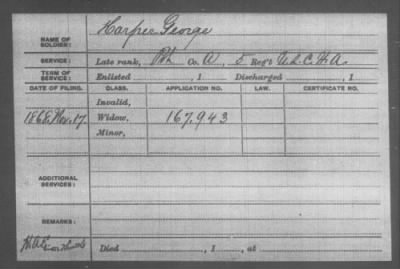 NAME OF SOLDIER: Harper George
SERVICE: Late rank, Pvt Co. A, 5 Reg't U.S.C.H.A.
TERM OF SERVICE: Enlisted , 1 Discharged , 1
DATE OF FILING. CLASS. APPLICATION NO. LAW. CERTIFICATE NO.
Invalid,
1868, Nov. 17. Widow, 167,943
Minor,
ADDITIONAL SERVICES:
REMARKS:
Died , 1 , at